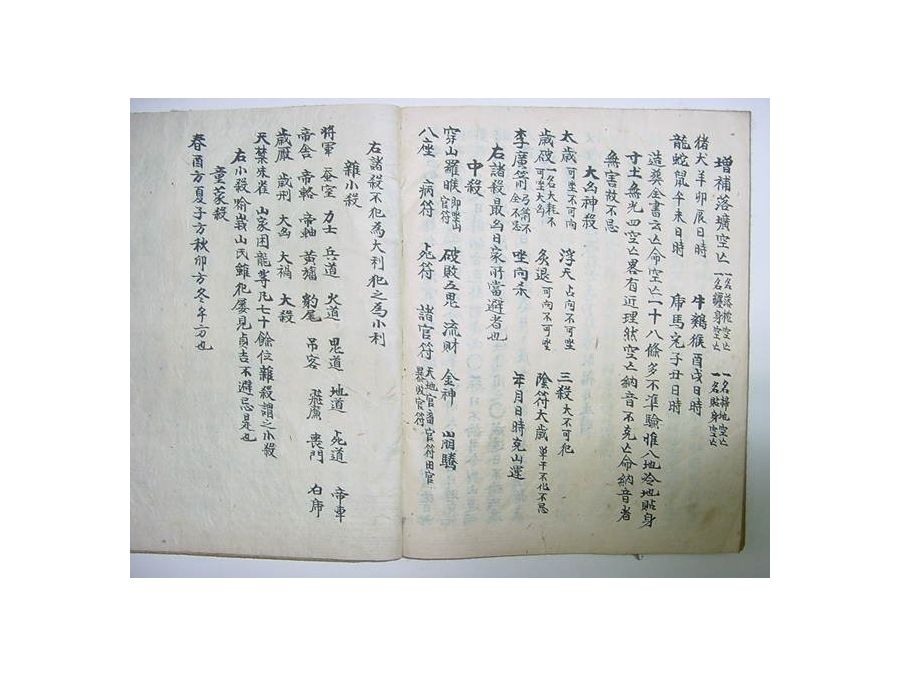 增補落壙空亡 一名落壙空亡 一名轉身空亡 一名掃地空亡 一名貼身空亡
猪犬羊卯辰日時 牛鷄猴酉戌日時
龍蛇鼠午未日時 帍馬兎子丑日時
造葬金書云亡命空亡二十八條多不準驗惟八地冷地貼身
寸土無光四空亡畧有近理然空亡納音不克亡命納音者
無害故不忌
大凶神殺
太歲 可坐不可向 浮天 占向不可坐 三殺 大不可犯
歲破 一名大耗不可坐大凶 灸退 可向不可坐 陰符大歲 單干不化不忌
李廣箭 全不忌 坐向杀 年月日時克山運
右諸殺最凶日家所當避者也
中殺
穿山羅睺 即坐山官符 破敗五鬼 流財 金神
八座 病符 死符 諸官符
右諸殺不犯為大利犯之為小利
雜小殺
將軍 蚕室 力士 兵道 火道 鬼道 地道 死道 帝車
帝舍 帝輅 帝軸 黃幡 豹尾 吊客 飛廉 喪門 白帍
歲厭 歲刑 大凶 大禍 大殺
天禁朱雀 山家困龍等凡七十餘位雜殺謂之小殺
右小殺 雖犯屡見貞吉不避忌是也
童蒙殺
春酉方夏子方秋卯方冬午方也